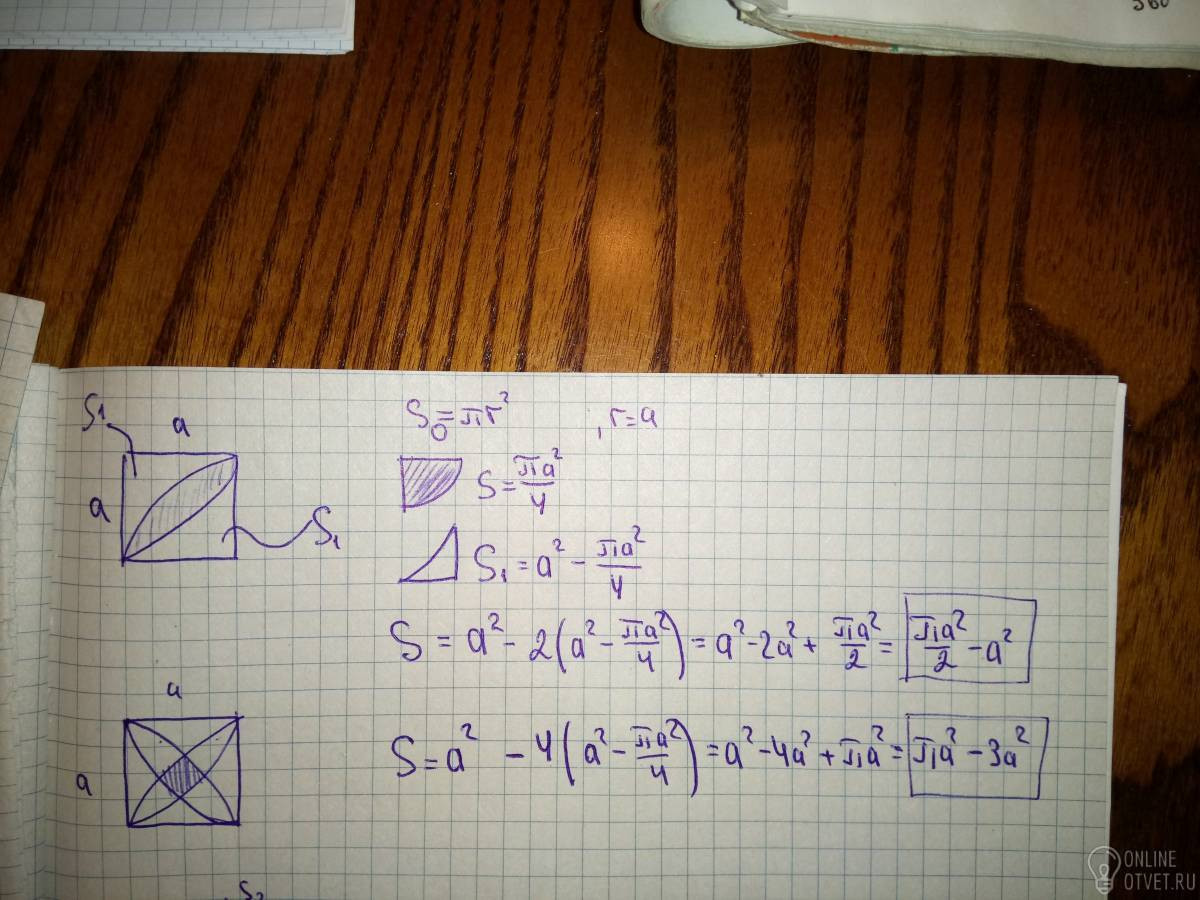 S1
a
a
S1
S○=πr² , r=a
S=πa²/4
S1=a² - πa²/4
S = a² - 2(a² - πa²/4) = a² - 2a² + πa²/2 = πa²/2 - a²
a
a
S=a² - 4(a² - πa²/4) = a² - 4a² + πa² = πa² - 3a²
S2
ONLINE
OTVET.RU